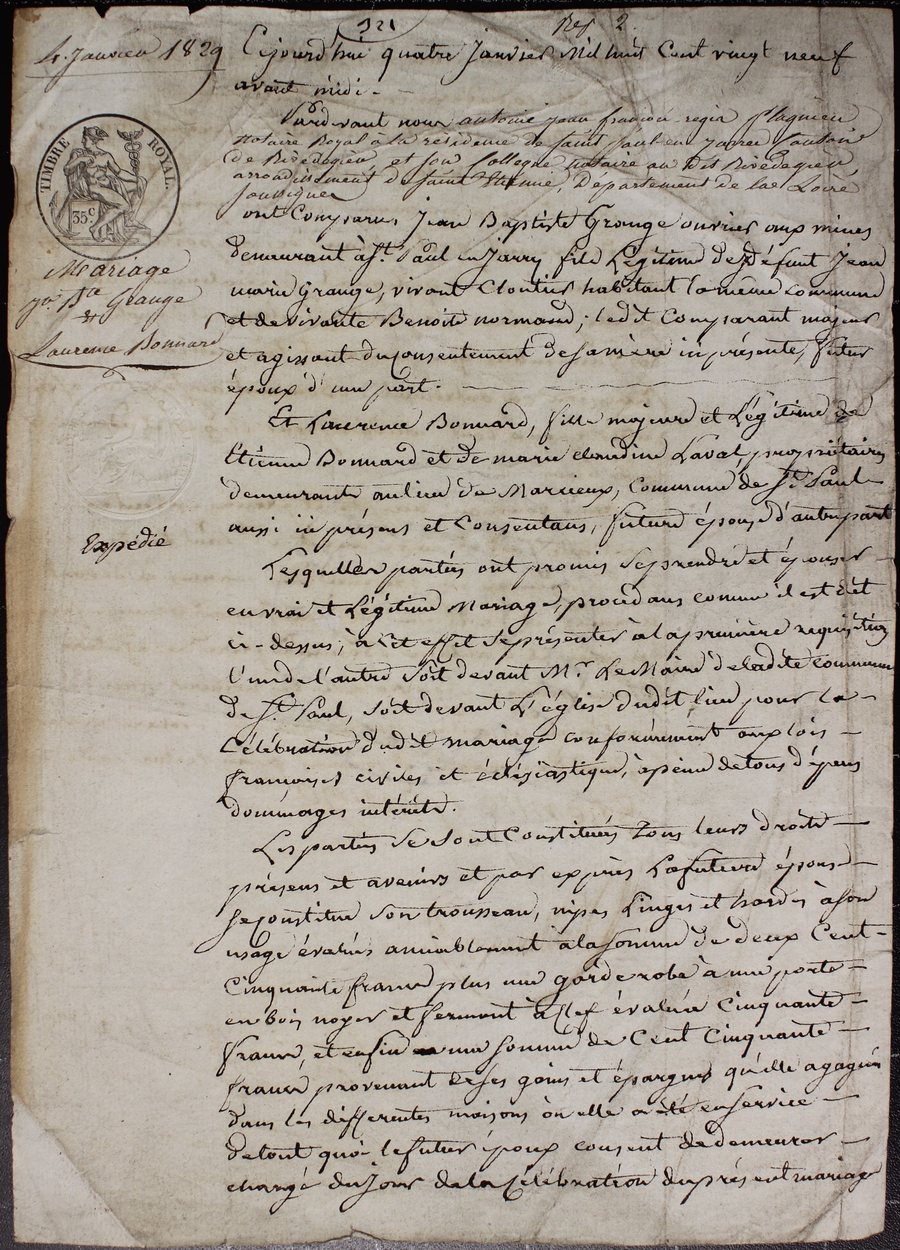 121
Rep 2
4. Janvier 1829
Cejourd'hui quatre Janvier Mil huit Cent vingt neuf
avant midi -
TIMBRE ROYAL.
35 c.
Mariage
Jn. Bte Grange
et
Laurence Bonnard
Expédié
Pardevant nous antoine jean françois regis flagnieu
Notaire Royal à la résidence de Saint Paul en Jarrez Canton
de Rivedegier et son Collegue notaire au dit Rivedegier
arrondissement de Saint Etienne, Département de la Loire
Soussignés
ont Comparus Jean Baptiste Grange ouvrier aux mines
demeurant à St. Paul en Jarry fils Légitime de défunt Jean
marie Grange, vivant Cloutier habitant la même commune
et de vivante Benoite normand; ledit Comparant majeur
et agissant du consentement de sa mère ici présente, futur
époux d'une part. -
Et Laurence Bonnard, fille majeure et Légitime de
Etienne Bonnard et de marie claudine Laval propriétaires
demeurants au lieu de Marcieux, Commune de St. Paul -
aussi ici présens et Consentans, future épouse d'autre part
Lesquelles parties ont promis se prendre et épouser -
en vrai et Légitime Mariage, procédans comme il est dit
ci-dessus, à cet effet se présenter à la première requisition
l'une de l'autre soit devant Mr. Le Maire de ladite commune
de St. Paul, soit devant L'église dudit lieu pour la -
Célébration dudit mariage conformément aux lois -
françaises civiles et éclésiastique, à peine de tous dépens
dommages intérêts.
Les parties se sont Constituées tous leurs droits -
présens et avenirs et par exprès La future épouse -
se constitue son trousseau, nipes Linges et hardes à son
usage évalués amiablement à la somme de deux Cent -
Cinquante francs plus une garderobe à une porte -
en bois noyer et fermant à clef évaluée Cinquante -
francs, et enfin une somme de Cent Cinquante -
francs provenant de ses gains et épargnes qu'elle a gagnés
dans les différentes maisons où elle a été en service -
de tout quoi le futur époux consent de demeurer -
chargé du jour de la Célébration du présent mariage